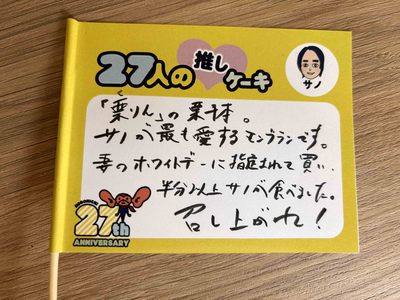 27人の推しケーキ
サノ
「栗りん」の栗千本。
く
サノが最も愛するモンブランです。
妻のホワイトデーに指定されて買い、
半分以上サノが食べました。
召し上がれ!
HOBONICHI
27th
ANNIVERSARY